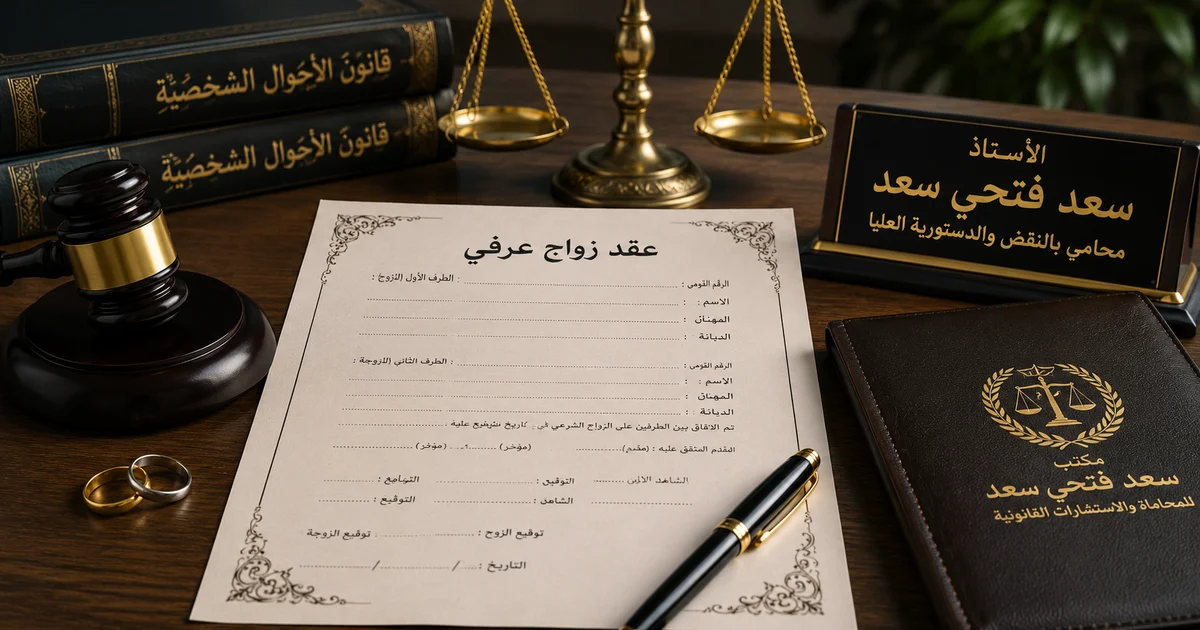 قانون الأحوال الشخصية
قانون الأحوال الشخصية
الأستاذ
سعد فتحي سعد
محامي بالنقض والدستورية العليا
عقد زواج عرفي
الرقم القومى : الطرف الأول (الزوج) :
الاسم :
المهنان :
الديانة :
الرقم القومى : الطرف الثاني (للزوجة :
الاسم :
المهنان :
الديانة :
تم الاتفاق بين الطرفين على الزواج الشرعي في عليه :
المتفق عليه : (مقدم) (مؤخر) (مؤخر)
الشاهد التوقيق :
الشاهد : التوقيع :
توقيع الزوج : توقيع الزوجة
التاريخ : / /
مكتب
سعد فتحي سعد
للمحاماة والاستشارات القانونية